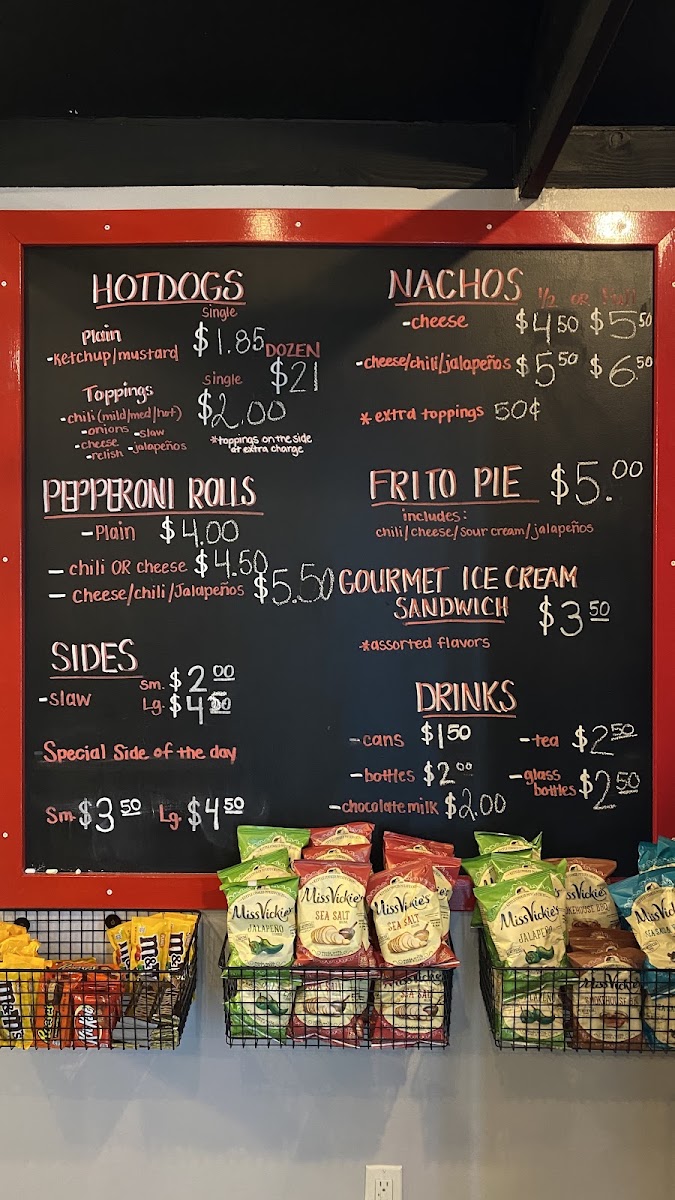 HOTDOGS
Single
Plain
-Ketchup/mustard $1.85
DOZEN
$21
Toppings
single
$2.00
-chili (mild/med/hot)
-onions -slaw
-cheese -jalapeños
-relish
*toppings on the side
at extra charge
PEPPERONI ROLLS
-Plain $4.00
- chili OR cheese $4.50
- cheese/chili/Jalapeños $5.50
SIDES
-slaw
Sm. $2 00
Lg. $4
Special Side of the day
Sm. $3 50 Lg. $4 50
NACHOS
1/2 OR
-cheese $4 50 $5 50
-cheese/chili/jalapeños $5 50 $6.50
* extra toppings 50¢
FRITO PIE $5.00
includes:
chili/cheese/sour cream/jalapeños
GOURMET ICE CREAM
SANDWICH $3 50
*assorted flavors
DRINKS
-cans $1 50
-tea $2 50
-bottles $2 00
-glass
bottles $2 50
-chocolate milk $2.00
Miss Vickie's
JALAPEÑO
Miss Vickie's
SEA SALT
Miss Vickie's
SEA SALT
Miss Vickie's
JALAPEÑO
Miss Vickie's
m&m's
m&m's